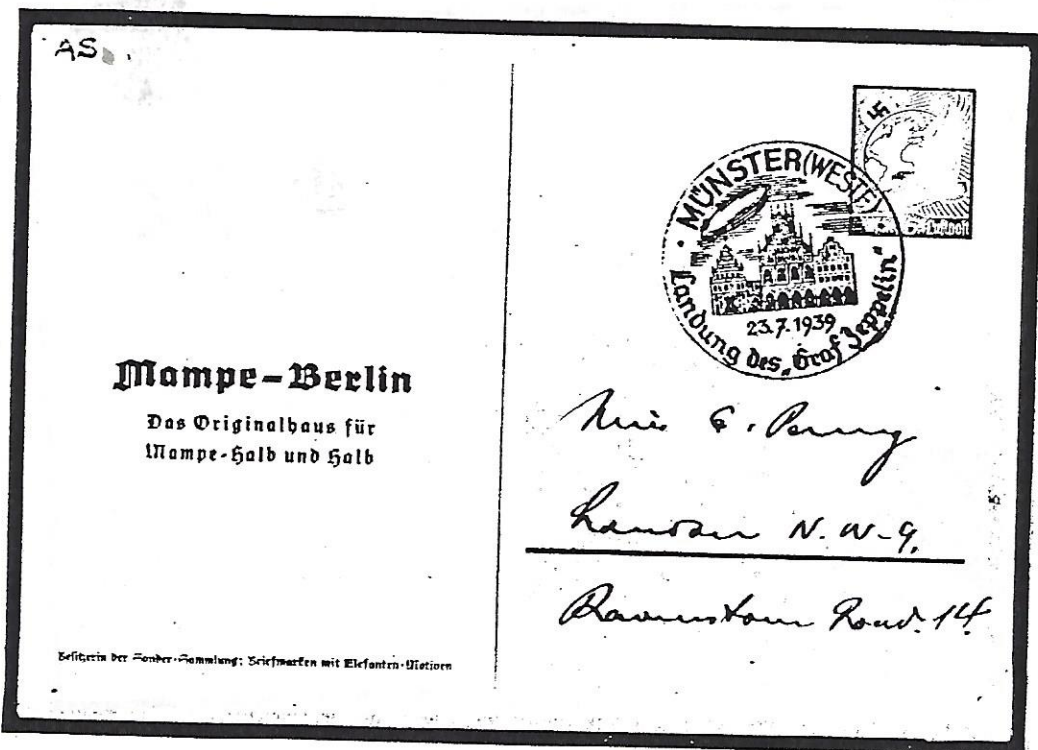 AS
Mampe-Berlin
Das Originalhaus für
Mampe-Halb und Halb
Besitzerin der Sonder-Sammlung: Briefmarken mit Elefanten-Motiven
MÜNSTER (WESTF)
23.7.1939
Landung des „Graf Zeppelin“
Luftpost
Miss G. Penny
London N.W-9.
Road. 14